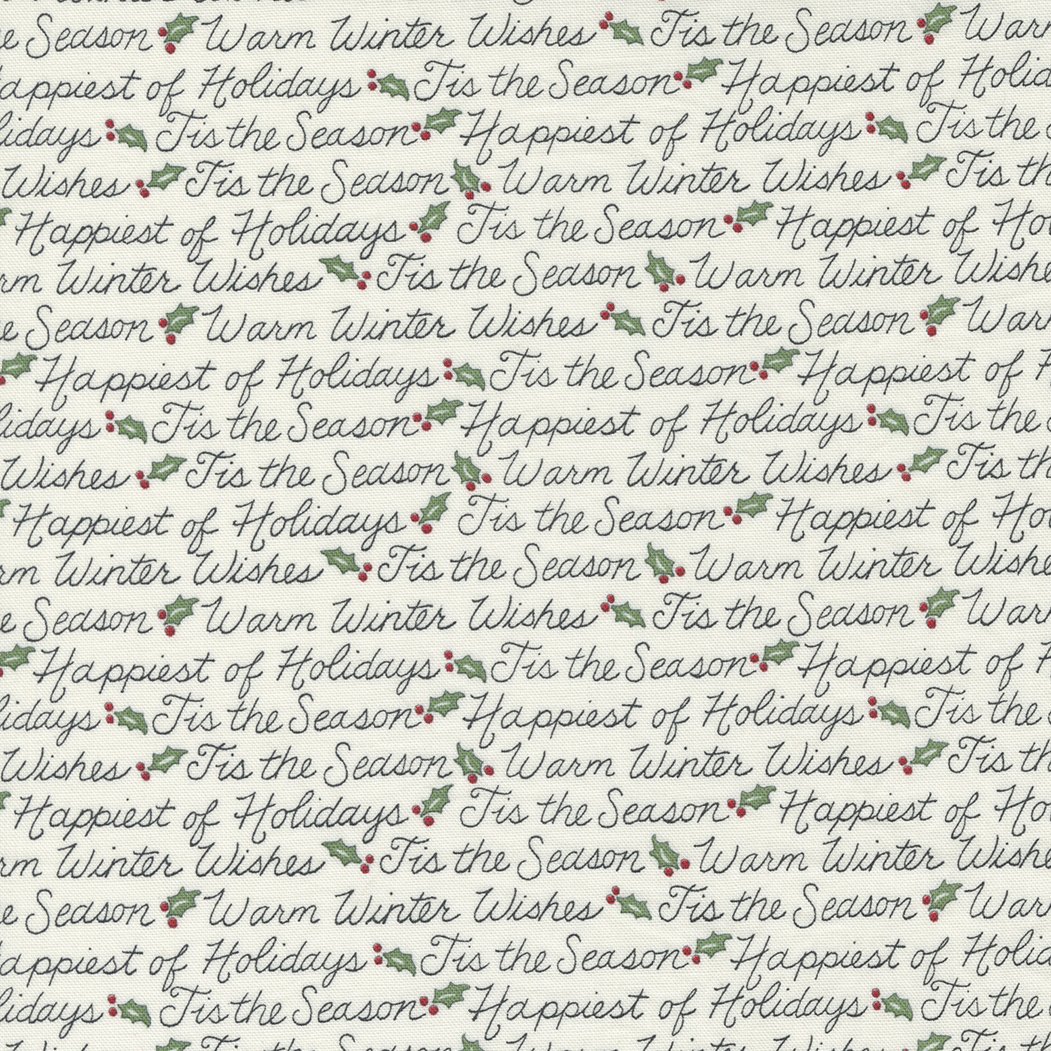 e Season Warm Winter Wishes Tis the Season Warm
appiest of Holidays 'Tis the Season Happiest of Holid
lidays 'Tis the Season Happiest of Holidays 'Tis the S
Wishes 'Tis the Season Warm Winter Wishes 'Tis th
Happiest of Holidays 'Tis the Season Happiest of Ho
rm Winter Wishes 'Tis the Season Warm Winter Wishe
e Season Warm Winter Wishes 'Tis the Season War
Happiest of Holidays 'Tis the Season Happiest of H
lidays 'Tis the Season Happiest of Holidays 'Tis the S
Wishes 'Tis the Season Warm Winter Wishes 'Tis th
Happiest of Holidays 'Tis the Season Happiest of Ho
rm Winter Wishes 'Tis the Season Warm Winter Wishe
e Season Warm Winter Wishes 'Tis the Season War
Happiest of Holidays 'Tis the Season Happiest of H
lidays 'Tis the Season Happiest of Holidays 'Tis the S
Wishes 'Tis the Season Warm Winter Wishes 'Tis th
Happiest of Holidays 'Tis the Season Happiest of Ho
rm Winter Wishes 'Tis the Season Warm Winter Wishe
e Season Warm Winter Wishes 'Tis the Season War
appiest of Holidays 'Tis the Season Happiest of Holid
lidays 'Tis the Season Happiest of Holidays 'Tis the